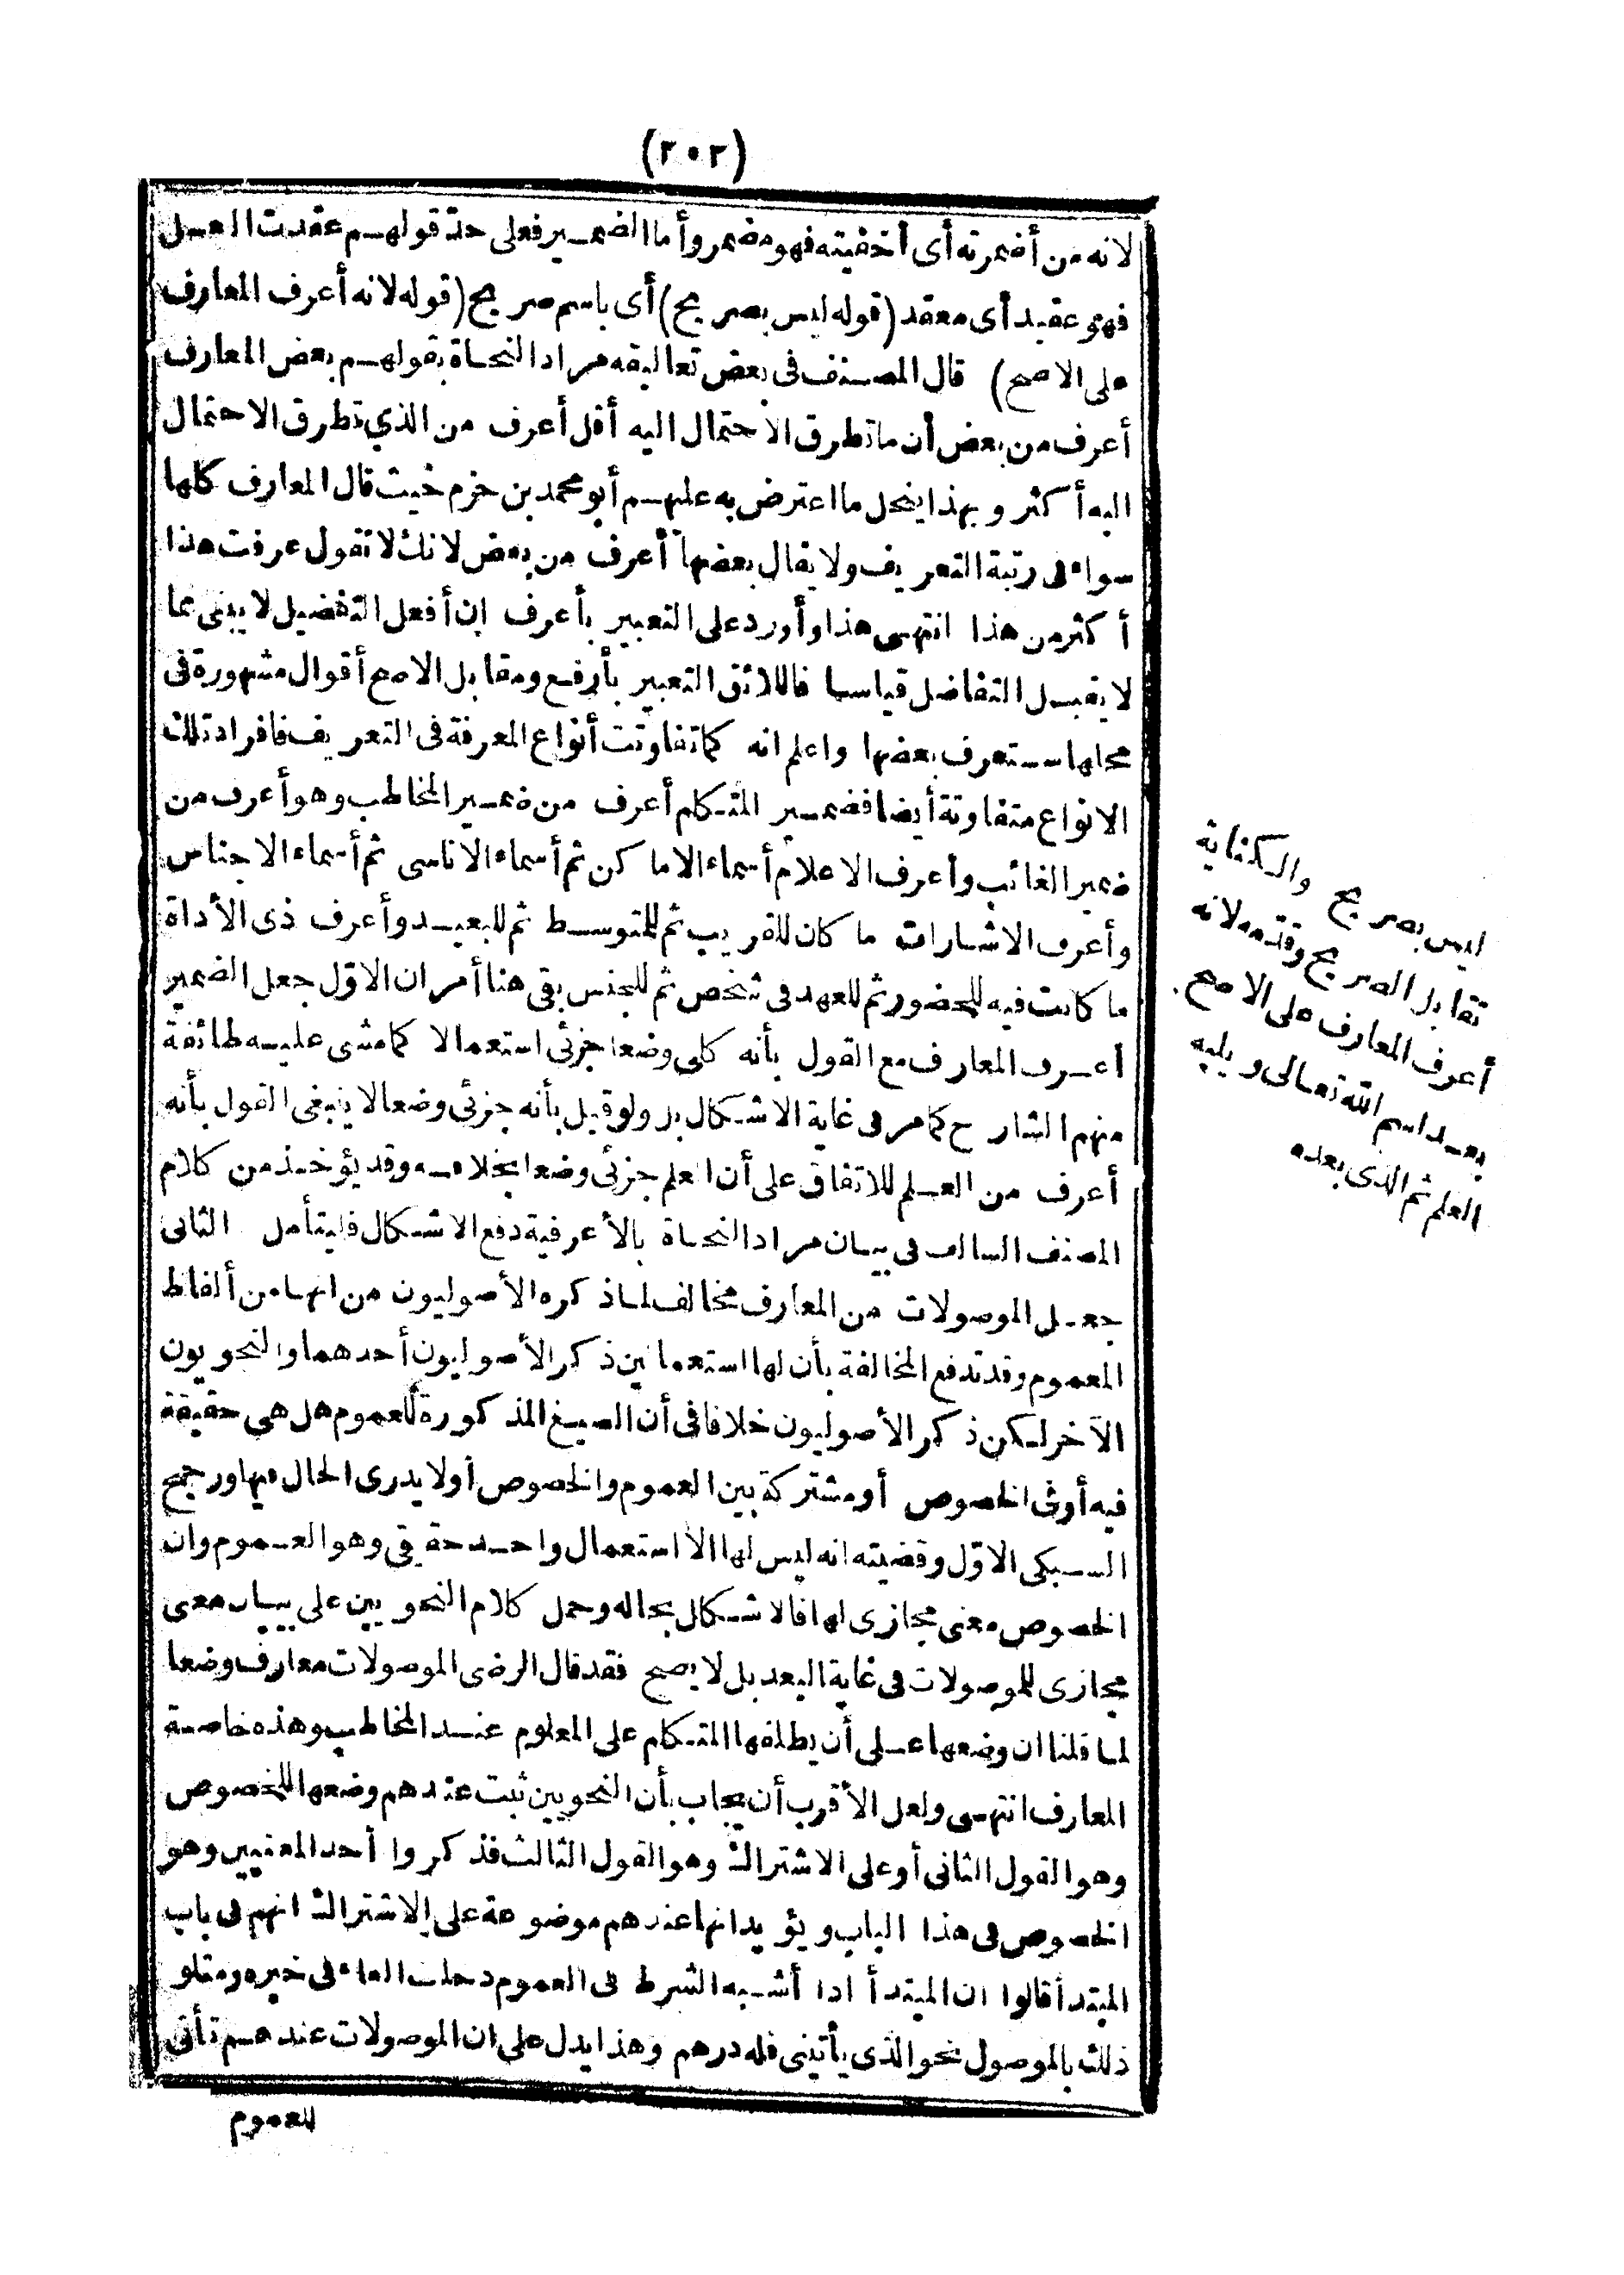 (٢٠٢)
لانه من أضمرته أى أخفيته فهو مضمر وأما الضمير فعلى حد قولهم عقدت العسل
فهو عقيد أى معقد (قوله ليس بصريح) أى باسم صريح (قوله لانه أعرف المعارف
على الاصح) قال المصنف فى بعض تعاليقه مراد النحاة بقولهم بعض المعارف
أعرف من بعض أن ما تطرق الاحتمال اليه أقل أعرف من الذي تطرق الاحتمال
اليه أكثر وبهذا ينحل ما اعترض به عليهم أبو محمد بن حزم حيث قال المعارف كلها
سواء فى رتبة التعريف ولا يقال بعضها أعرف من بعض لانك لا تقول عرفت هذا
أكثر من هذا انتهى هذا وأورد على التعبير بأعرف ان أفعل التفضيل لا يبنى مما
لا يقبل التفاضل قياسا فاللائق التعبير بأرفع ومقابل الاصح أقوال مشهورة فى
محلها ستعرف بعضها واعلم انه كما تفاوتت أنواع المعرفة فى التعريف فافراد تلك
الانواع متفاوتة أيضا فضمير المتكلم أعرف من ضمير المخاطب وهو أعرف من
ضمير الغائب وأعرف الاعلام أسماء الاماكن ثم أسماء الاناسى ثم أسماء الاجناس
وأعرف الاشارات ما كان للقريب ثم للمتوسط ثم للبعيد وأعرف ذى الأداة
ما كانت فيه للحضور ثم للعهد فى شخص ثم للجنس بقى هنا أمران الاول جعل الضمير
أعرف المعارف مع القول بأنه كلى وضعا جزئى استعمالا كما مشى عليه طائفة
منهم الشارح كما مر فى غاية الاشكال بل ولو قيل بأنه جزئى وضعا لا ينبغى القول بأنه
أعرف من العلم للاتفاق على أن العلم جزئى وضعا بخلافه وقد يؤخذ من كلام
المصنف السالف فى بيان مراد النحاة بالأعرفية دفع الاشكال فليتأمل الثانى
جعل الموصولات من المعارف مخالف لما ذكره الأصوليون من انها من ألفاظ
العموم وقد تدفع المخالفة بأن لها استعمالين ذكر الأصوليون أحدهما والنحويون
الآخر لكن ذكر الأصوليون خلافا فى أن الصيغ المذكورة للعموم هل هى حقيقة
فيه أو فى الخصوص أو مشتركة بين العموم والخصوص أو لا يدرى الحال فيها ورجح
السبكى الاول وقضيته انه ليس لها الا استعمال واحد حقيقى وهو العموم وان
الخصوص معنى مجازى لها فالاشكال بحاله وحمل كلام النحويين على بيان معنى
مجازى للموصولات فى غاية البعد بل لا يصح فقد قال الرضى الموصولات معارف وضعا
لما قلنا ان وضعها على أن يطلقها المتكلم على المعلوم عند المخاطب وهذه خاصة
المعارف انتهى ولعل الأقرب أن يجاب بأن النحويين ثبت عندهم وضعها للخصوص
وهو القول الثانى أو على الاشتراك وهو القول الثالث فذكروا أحد المعنيين وهو
الخصوص فى هذا الباب ويؤيد انها عندهم موضوعة على الاشتراك انهم فى باب
المبتدأ قالوا ان المبتدأ اذا أشبه الشرط فى العموم دخلت الفاء فى خبره ومثلو
ذلك بالموصول نحو الذى يأتينى فله درهم وهذا يدل على ان الموصولات عندهم تأتى
للعموم
ليس بصريح والكناية
تقابل الصريح وقدمه لانه
أعرف المعارف على الاصح
بعد اسم الله تعالى ويليه
العلم ثم الذى بعده